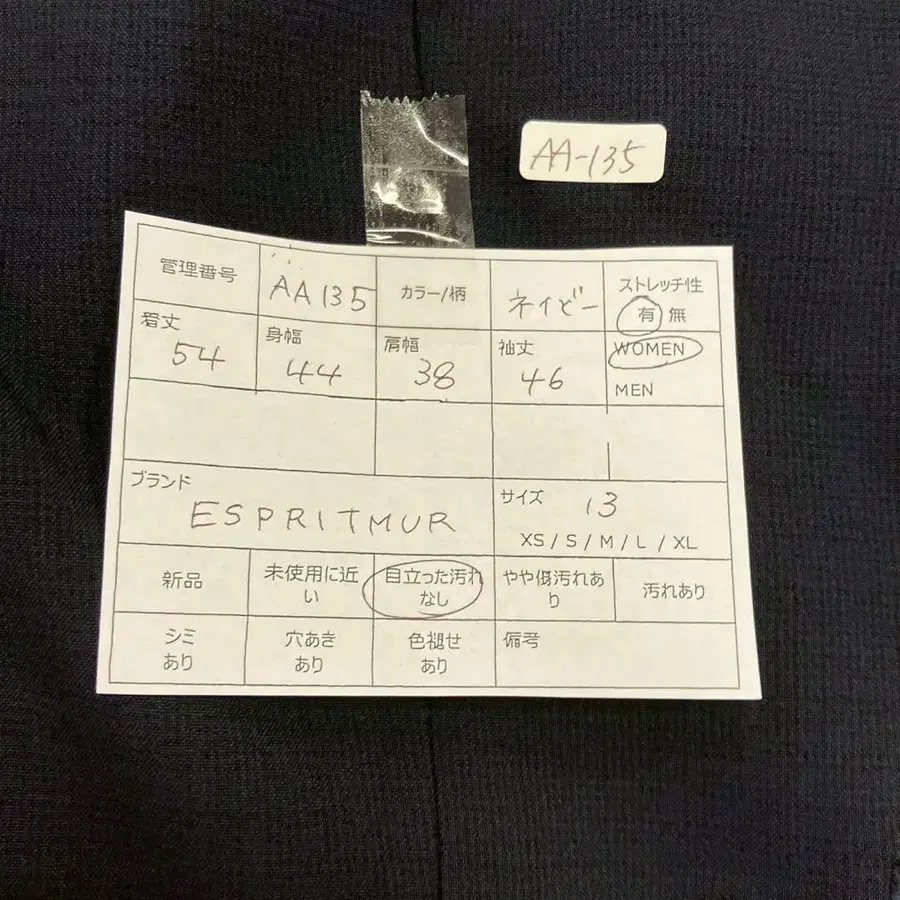 AA-135
管理番号 AA135 カラー/柄 ネイビー ストレッチ性
有 無
着丈 身幅 肩幅 袖丈 WOMEN
54 44 38 46
MEN
ブランド サイズ 13
ESPRITMUR
XS / S / M / L / XL
新品 未使用に近 目立った汚れ やや傷汚れあ 汚れあり
い なし り
シミ 穴あき 色褪せ 備考
あり あり あり